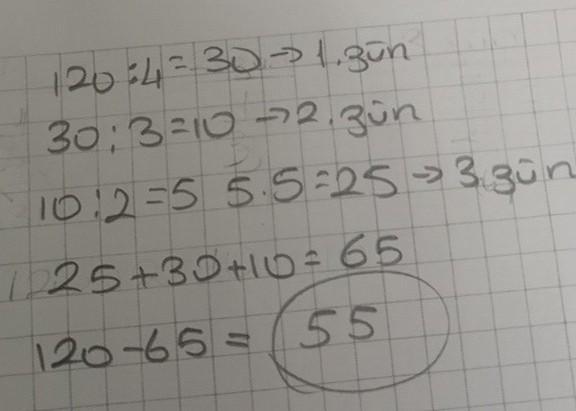 120:4=30→1.gün
30:3=10→2.gün
10:2=5 5.5=25→3.gün
25+30+10=65
120-65=55